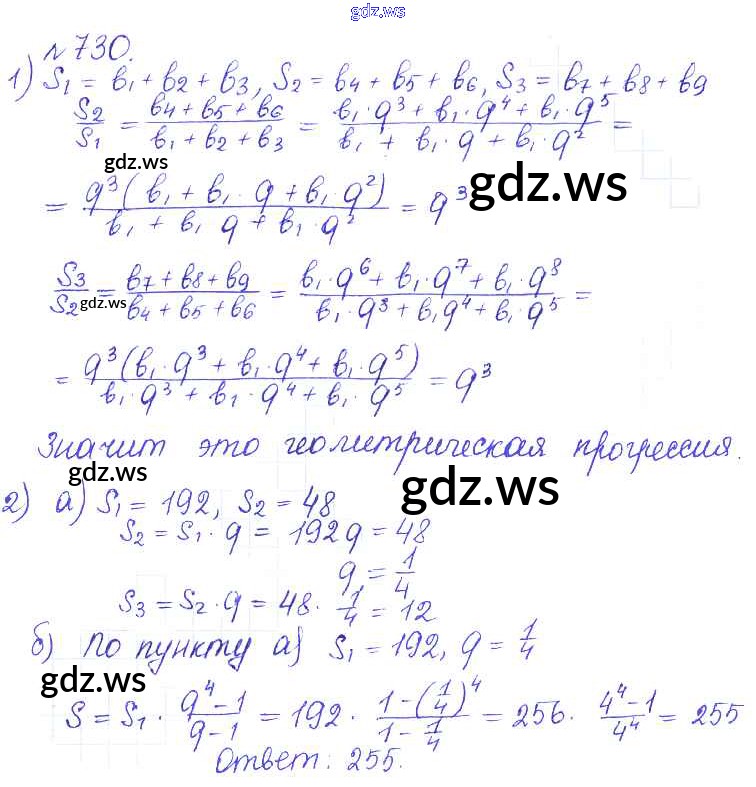 gdz.ws
№730.
1) S₁ = b₁ + b₂ + b₃, S₂ = b₄ + b₅ + b₆, S₃ = b₇ + b₈ + b₉
S₂/S₁ = (b₄ + b₅ + b₆)/(b₁ + b₂ + b₃) = (b₁·q³ + b₁·q⁴ + b₁·q⁵)/(b₁ + b₁·q + b₁·q²) =
gdz.ws
gdz.ws
= q³(b₁ + b₁·q + b₁·q²)/(b₁ + b₁ q + b₁·q²) = q³
S₃/S₂ = (b₇ + b₈ + b₉)/(b₄ + b₅ + b₆) = (b₁·q⁶ + b₁·q⁷ + b₁·q⁸)/(b₁·q³ + b₁q⁴ + b₁·q⁵) =
gdz.ws
= q³(b₁·q³ + b₁·q⁴ + b₁·q⁵)/(b₁·q³ + b₁·q⁴ + b₁·q⁵) = q³
Значит это геометрическая прогрессия.
gdz.ws
gdz.ws
2) а) S₁ = 192, S₂ = 48
S₂ = S₁·q = 192q = 48
q = 1/4
S₃ = S₂·q = 48·1/4 = 12
б) По пункту а) S₁ = 192, q = 1/4
gdz.ws
S = S₁·(q⁴ - 1)/(q - 1) = 192·(1 - (1/4)⁴)/(1 - 1/4) = 256·(4⁴ - 1)/4⁴ = 255
Ответ: 255.
gdz.ws
gdz.ws